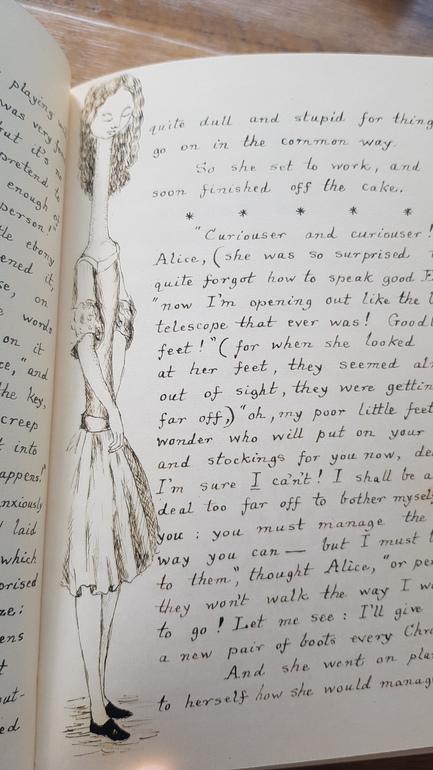 playing
was very
but it's no
pretend to
enough of
person!"
little ebony
opened it,
on
words
on it
and
the key,
creep
into
happens!"
anxiously
laid
which
ens
ed
quite dull and stupid for things
go on in the common way.
So she set to work, and
soon finished off the cake.
* * * * *
"Curiouser and curiouser!
Alice, (she was so surprised
quite forgot how to speak good E
"now I'm opening out like the l
telescope that ever was! Good
feet!" (for when she looked
at her feet, they seemed al
out of sight, they were gettin
far off,) "oh, my poor little feet
wonder who will put on your
and stockings for you now, de
I'm sure I can't! I shall be a
deal too far off to bother mysel
you: you must manage the
way you can — but I must b
to them", thought Alice, "or per
they won't walk the way I wa
to go! Let me see: I'll give
a new pair of boots every Chr
And she went on pla
to herself how she would manag